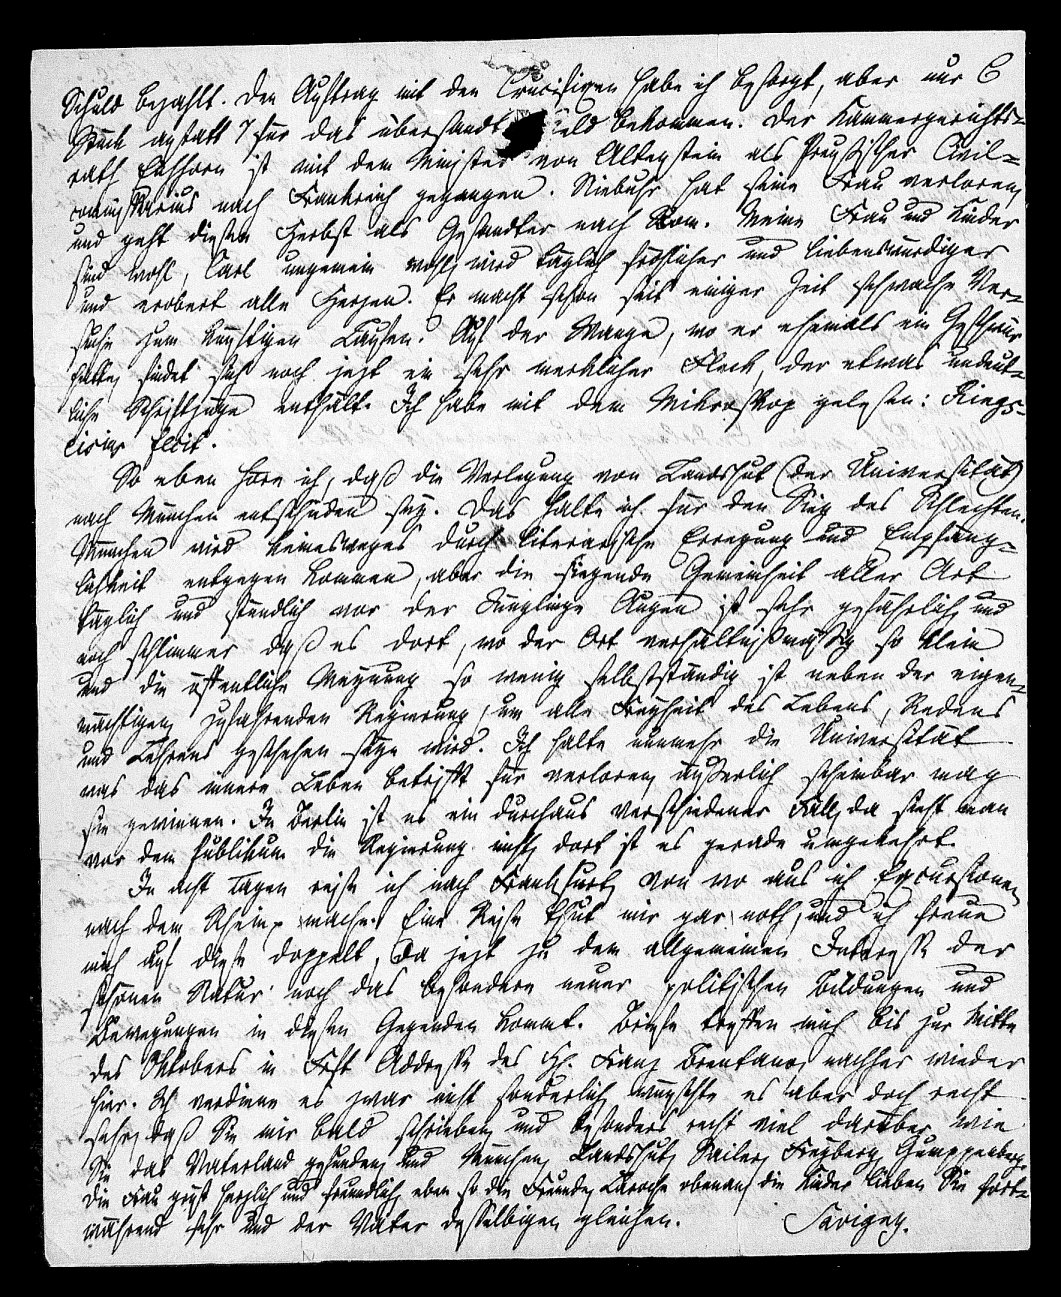 Schuld bezahlt. Den Auftrag mit den Crucifixen habe ich besorgt, aber nur 6
Stück anstatt 7 für das übersandte Geld bekommen. Der Kammergerichts-
rath Eichhorn ist mit dem Minister von Altenstein als Preußischer Civil-
commissarius nach Frankreich gegangen. Niebuhr hat seine Frau verloren,
und geht diesen Herbst als Gesandter nach Rom. Meine Frau und Kinder
sind wohl, Carl ungemein wohl, wird täglich fröhlicher und liebenswürdiger
und erobert alle Herzen. Er macht schon seit einiger Zeit schwache Ver-
suche zum künftigen Laufen. Auf der Wange, wo er ehemals ein Geschwür
hatte, findet sich noch jezt ein sehr merklicher Fleck, der etwas undeut-
liche Schriftzüge enthält. Ich habe mit dem Mikroskop gelesen: Rings-
eisius fecit.
So eben höre ich, daß die Verlegung von Landshut (der Universität)
nach München entschieden sey. Das halte ich für den Sieg des Schlechten.
München wird keinesweges durch literarische Erregung und Empfäng-
lichkeit entgegen kommen, aber die siegende Gemeinheit aller Art
täglich und stündlich vor der Jünglinge Augen ist sehr gefährlich, und
noch schlimmer daß es dort, wo der Ort verhältnißmäßig so klein
und die öffentliche Meynung so wenig selbstständig ist neben der eigen-
mächtigen, zufahrenden Regierung, um alle Freyheit des Lebens, Redens
und Lehrens geschehen seyn wird. Ich halte nunmehr die Universität
was das innere Leben betrifft für verloren, äußerlich scheinbar mag
sie gewinnen. In Berlin ist es ein durchaus verschiedener Fall, da sieht man
vor dem Publikum die Regierung nicht, dort ist es gerade umgekehrt.
In acht Tagen reise ich nach Frankfurt, von wo aus ich Excursionen
nach dem Rhein mache. Eine Reise thut mir gar noth, und ich freue
mich auf diese doppelt, da jezt zu dem allgemeinen Interesse der
schönen Natur noch das besondere neuer politischen Bildungen und
Bewegungen in diesen Gegenden kommt. Briefe treffen mich bis zur Mitte
des Oktobers in Frft Addresse des H. Franz Brentano, nachher wieder
hier. Ich verdiene es zwar nicht sonderlich, wünschte es aber doch recht
sehr, daß Sie mir bald schrieben, und besonders recht viel darüber wie
Sie das Vaterland gefunden, und München, Landshut, Sailer, Freyberg, Gumppenberg.
Die Frau grüßt herzlich und freundlich, eben so die Freunde, Laroche obenan, die Kinder lieben Sie fort-
während sehr und der Vater desselbigen gleichen. Savigny.